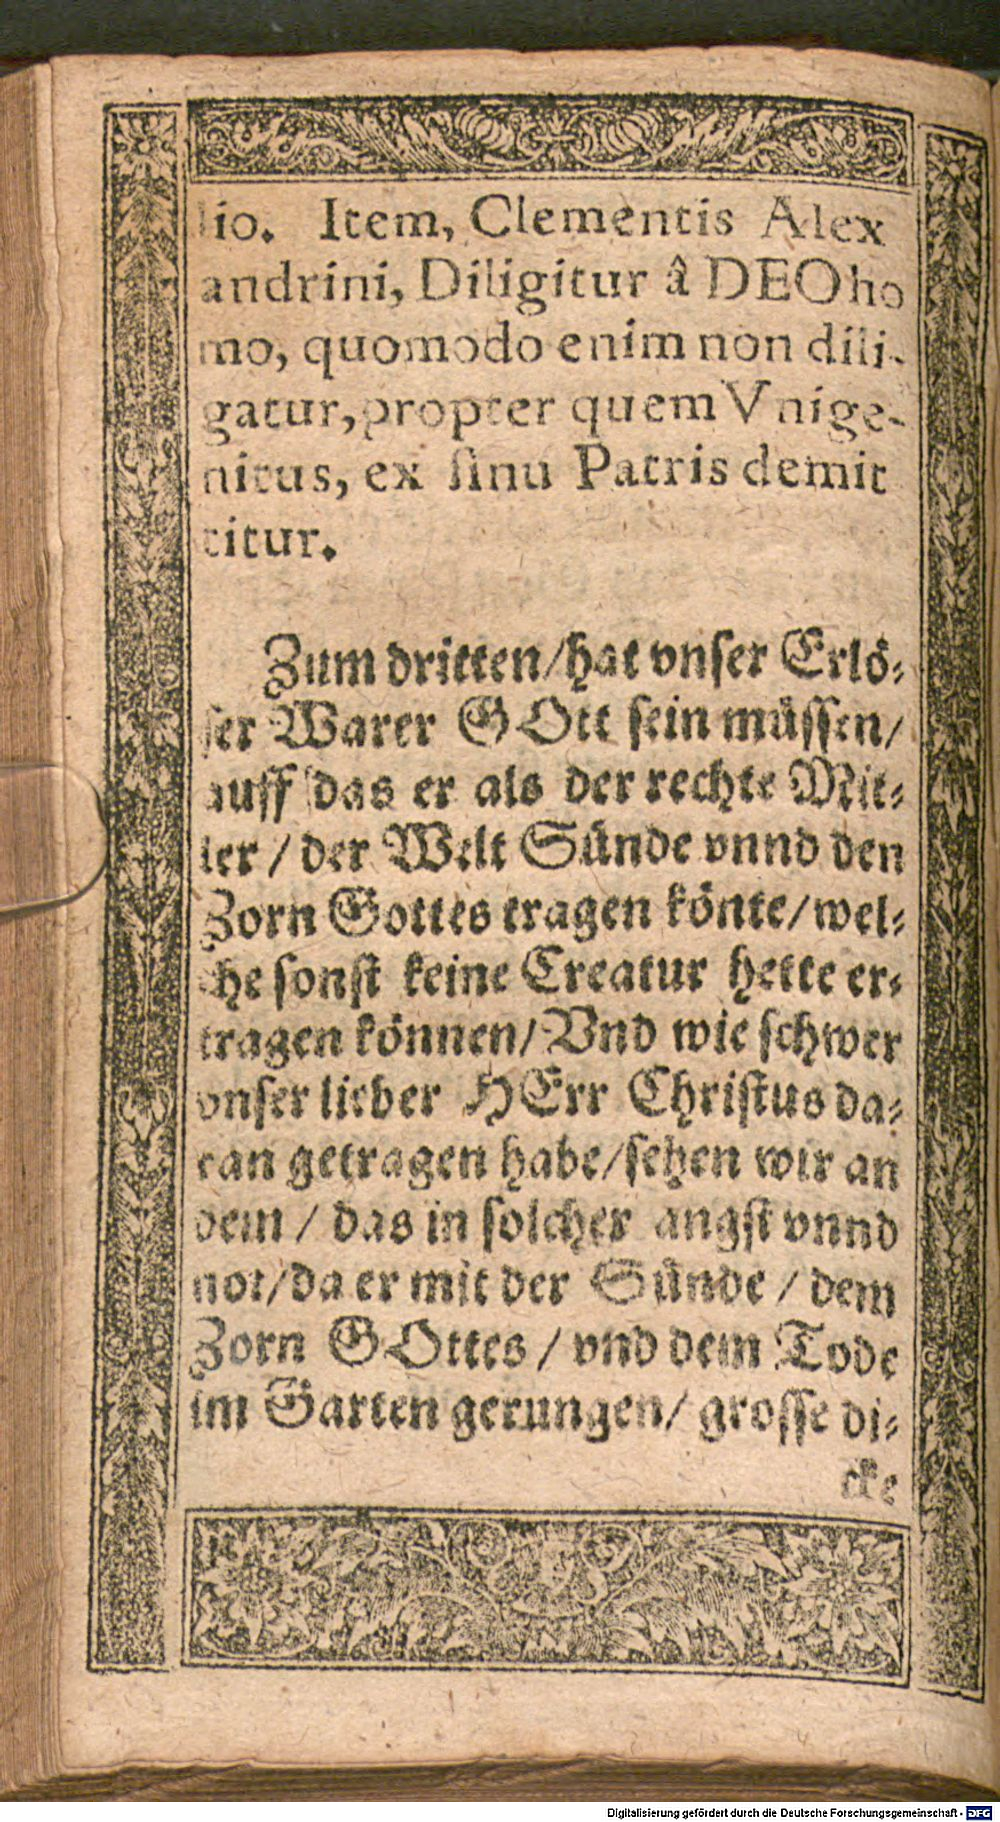 lio. Item, Clementis Alex
andrini, Diligitur â DEO ho
mo, quomodo enim non dili-
gatur, propter quem Vnige-
nitus, ex sinu Patris demit
titur.
Zum dritten/hat vnser Erlö-
ser Warer GOtt sein müssen/
auff das er als der rechte Mit-
ler / der Welt Sünde vnnd den
Zorn Gottes tragen könte/wel-
che sonst keine Creatur hette er-
tragen können/Vnd wie schwer
vnser lieber HErr Christus da-
ran getragen habe/sehen wir an
dem / das in solcher angst vnnd
not/da er mit der Sünde / dem
Zorn GOttes / vnd dem Tode
im Garten gerungen/ grosse di-
cke
Digitalisierung gefördert durch die Deutsche Forschungsgemeinschaft - DFG